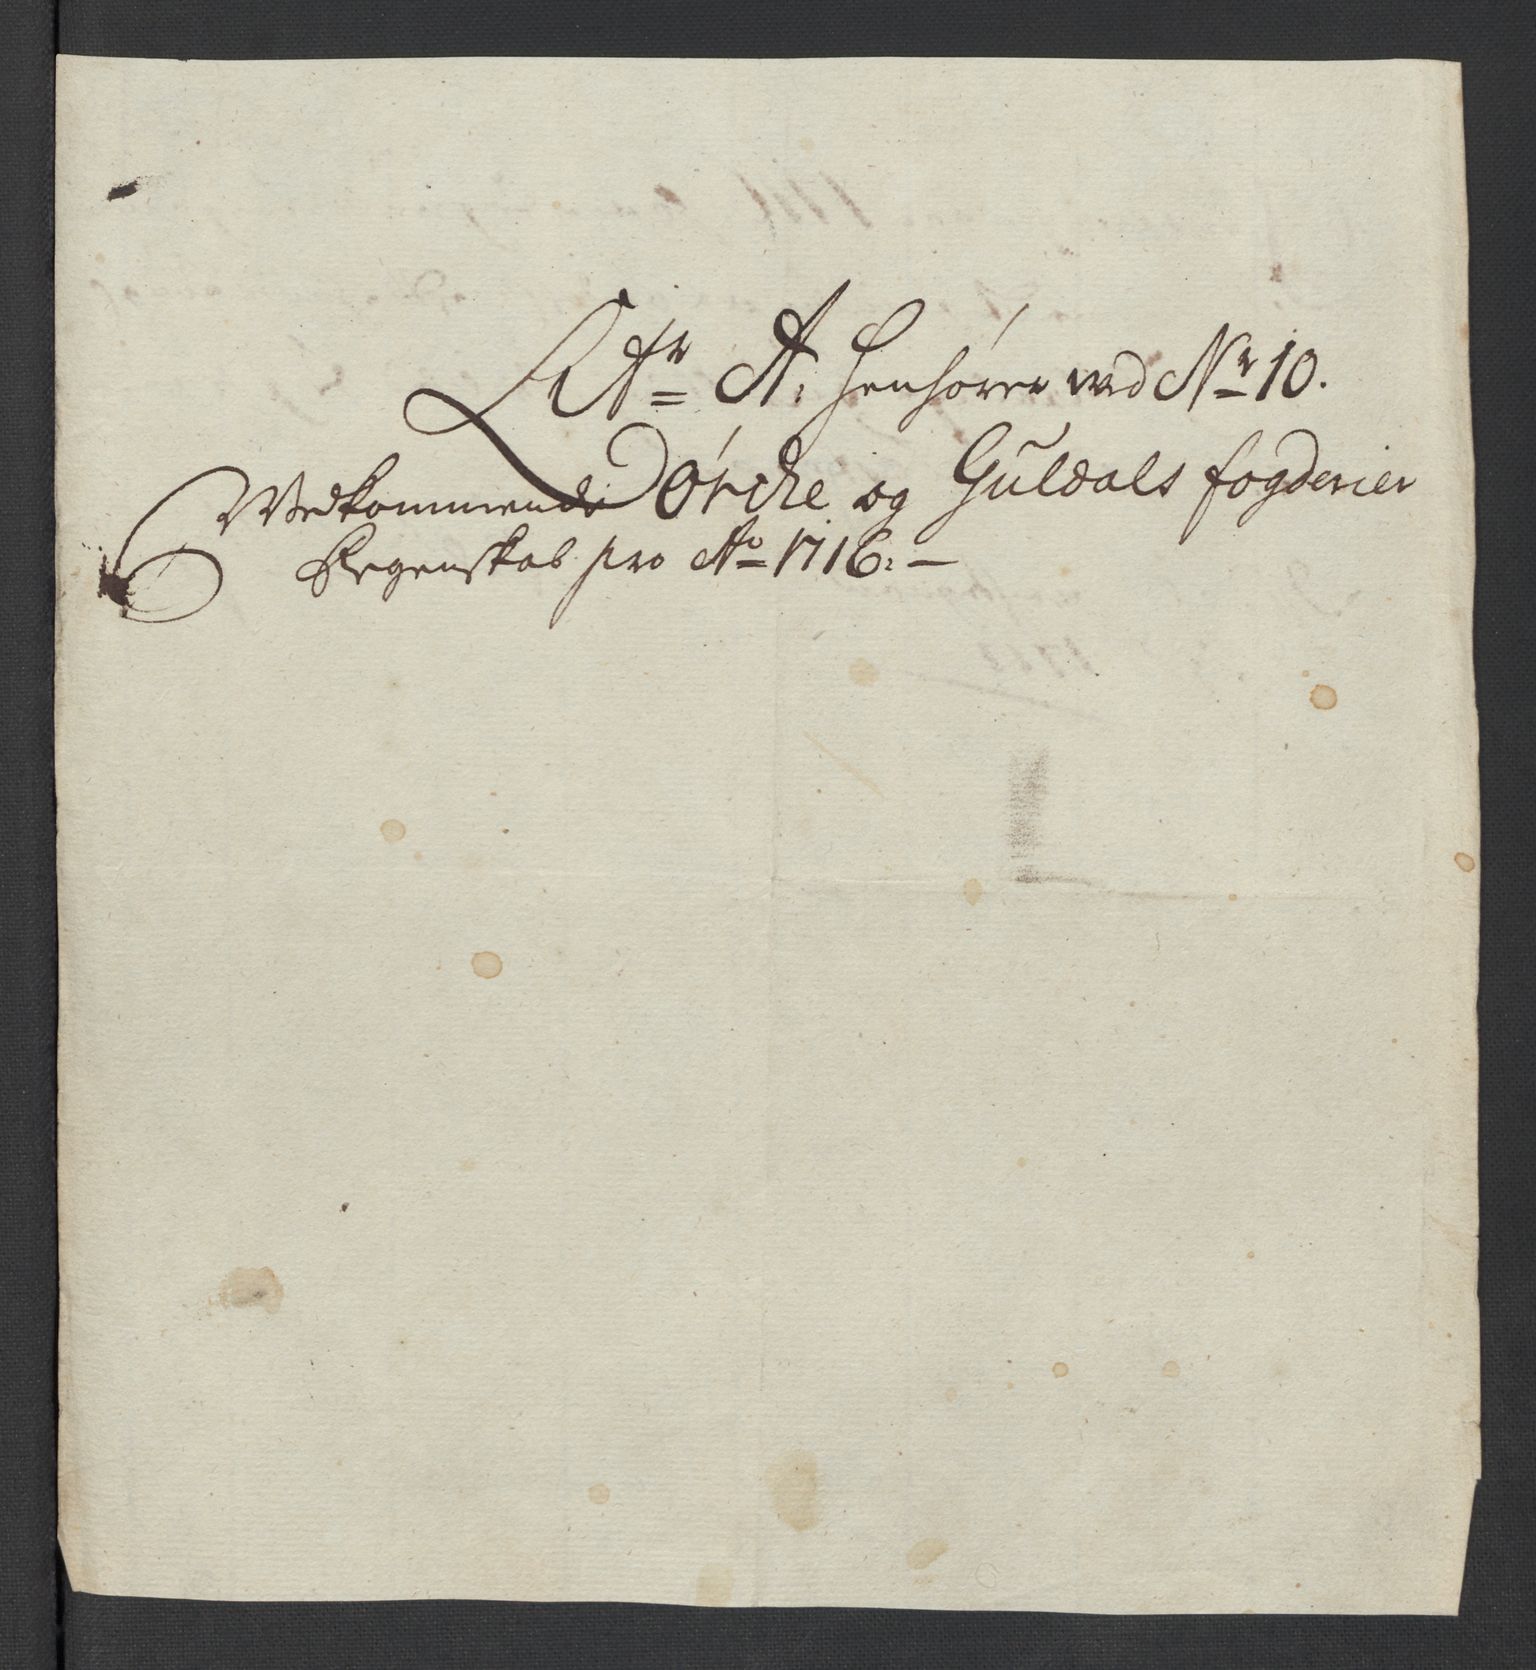 Litr A. henhører ved Nr 10.
Vedkommende Ørche og Guldals fogderier
Regenskab pro Ao 1716. —